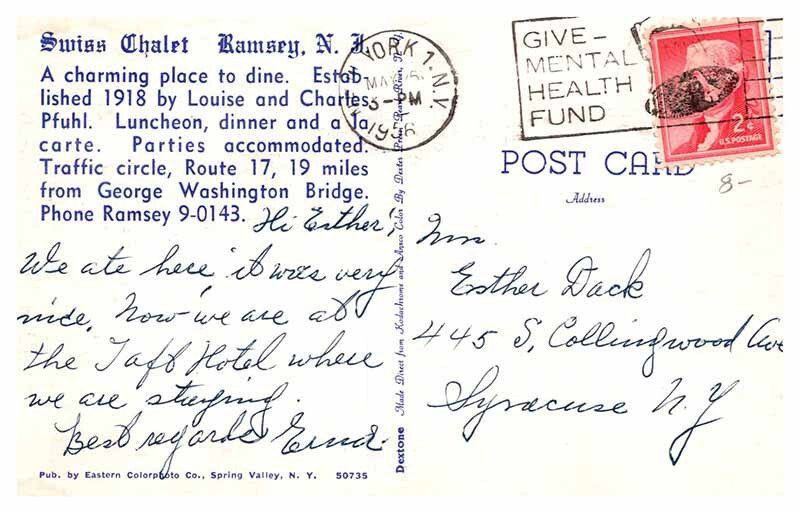 Swiss Chalet Ramsey, N. J.
A charming place to dine. Estab-
lished 1918 by Louise and Charles
Pfuhl. Luncheon, dinner and a la
carte. Parties accommodated.
Traffic circle, Route 17, 19 miles
from George Washington Bridge.
Phone Ramsey 9-0143.
Hi Esther,
We ate here, it was very
nice. Now we are at
the Taft Hotel where
we are staying.
Best regards Erna.
Pub. by Eastern Colorphoto Co., Spring Valley, N. Y. 50735
Dextone Made Direct from Kodachrome and Ansco Color By Dexter Press, Pearl River, N. Y.
YORK 1, N.Y.
MAY
3-PM
1956
GIVE-
MENTAL
HEALTH
FUND
2¢
U.S. POSTAGE
POST CARD
8-
Address
Mrs.
Esther Dack
445 S. Collingwood Ave
Syracuse N.Y